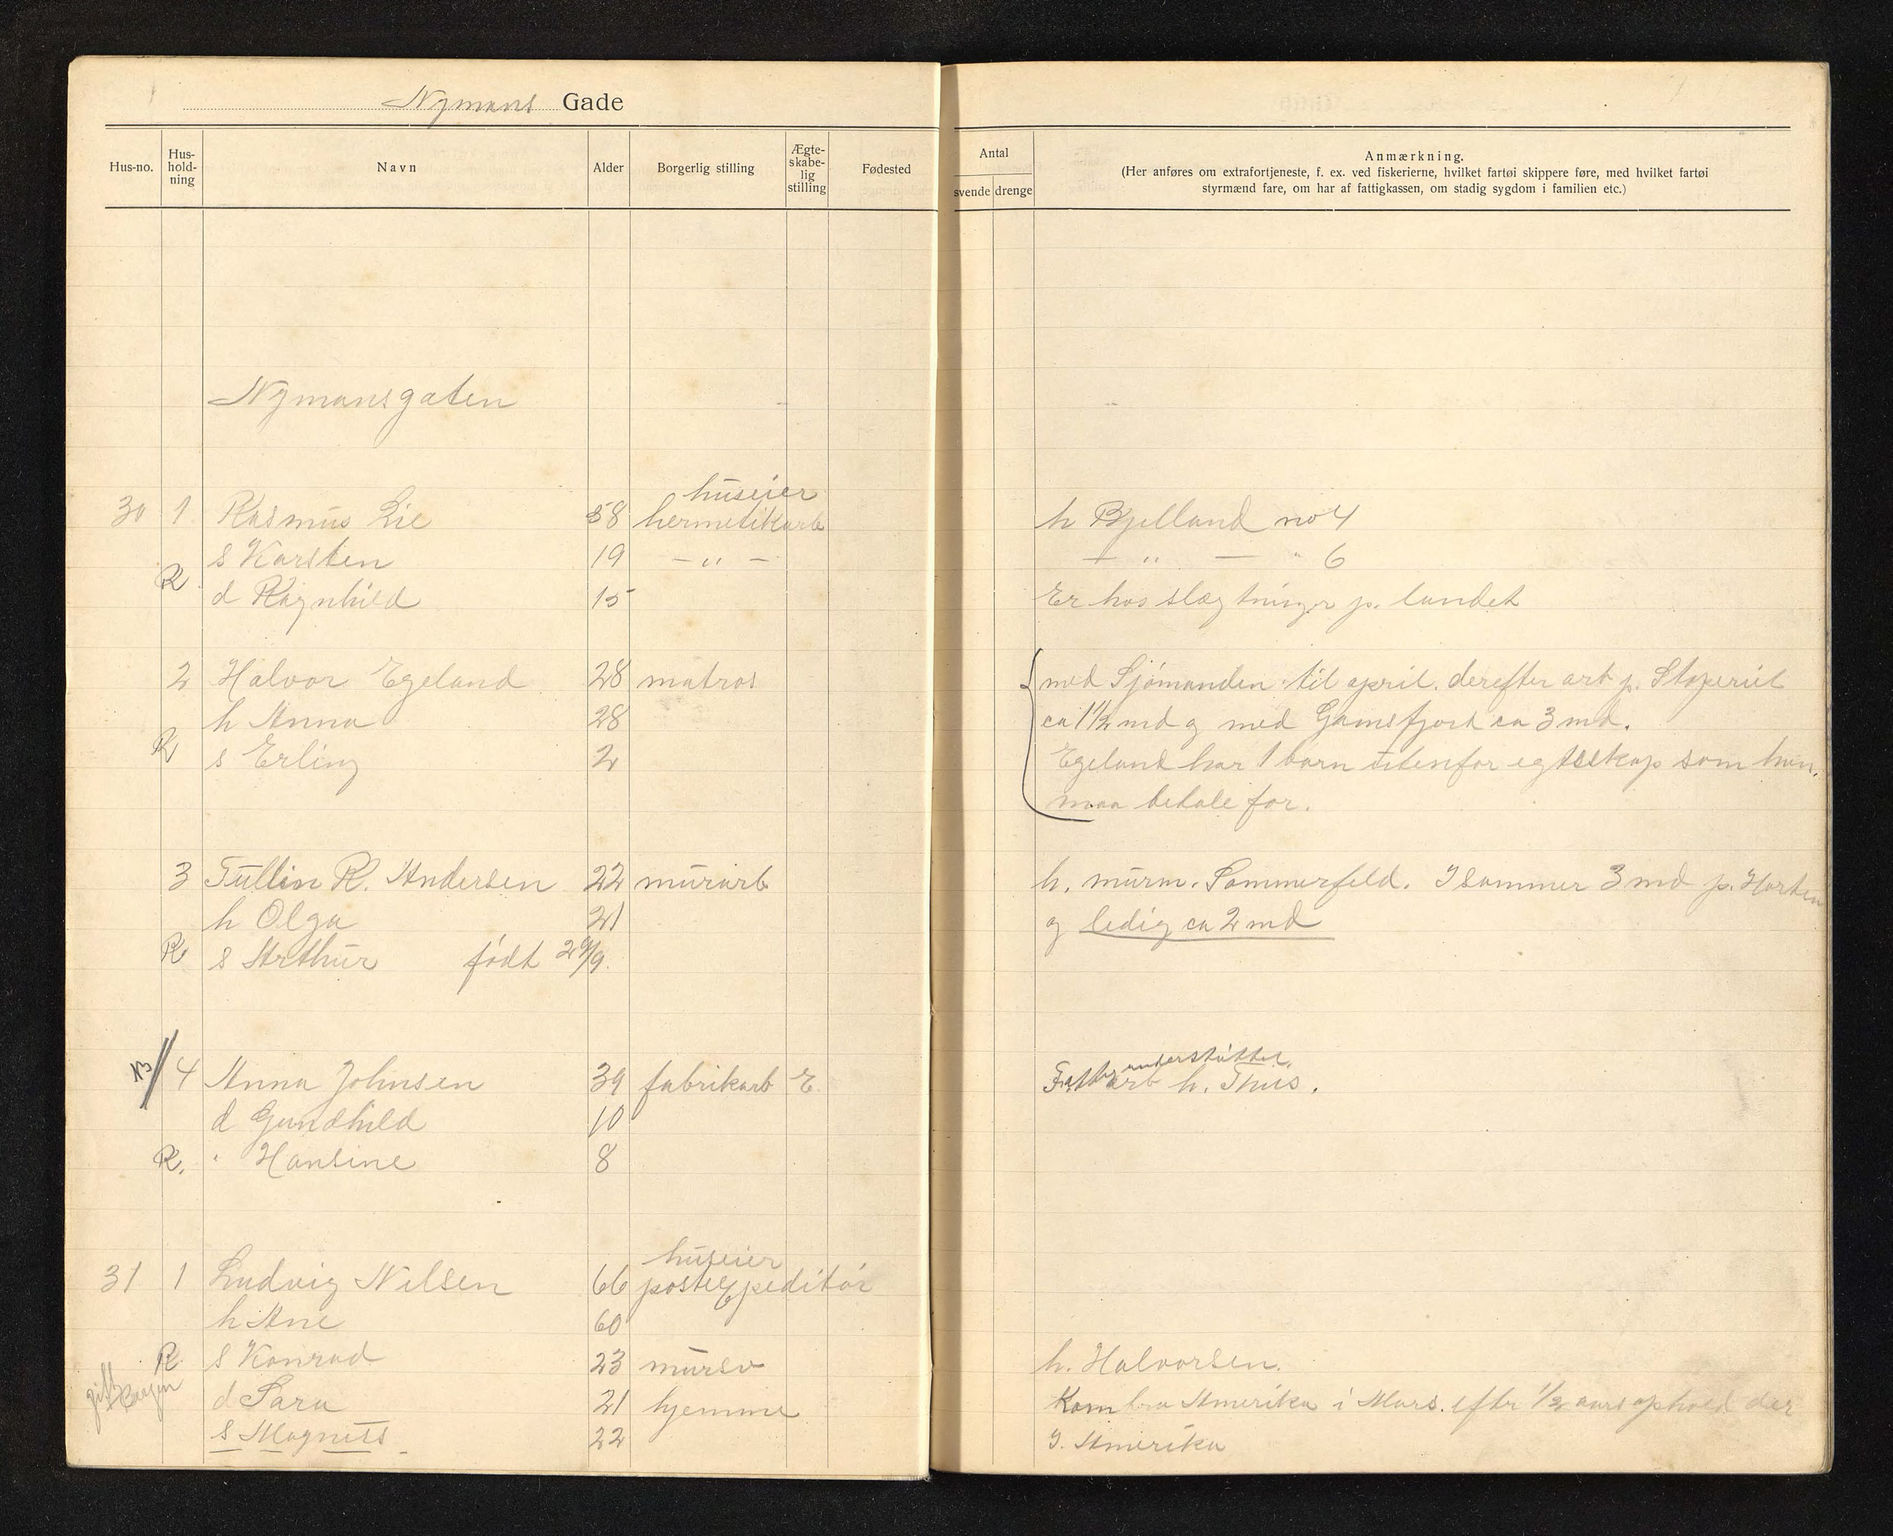 Nymans Gade
Hus-no. Hus-hold-ning Navn Alder Borgerlig stilling Ægte-skabe-lig stilling Fødested
Antal
svende drenge
Anmærkning.
(Her anføres om extrafortjeneste, f. ex. ved fiskerierne, hvilket fartøi skippere føre, med hvilket fartøi
styrmænd fare, om har af fattigkassen, om stadig sygdom i familien etc.)
Nymansgaten
huseier
30 1 Rasmus Lie 58 hermetikarb h Bjelland no 4
s Karsten 19 — " — — " — " 6
R d Ragnhild 15 Er hos slægtninger p. landet
2 Halvor Egeland 28 matros med Sjømanden til april. derefter arb p. Støperiet
h Anna 28 ca 1½ md og med Gamsfjord ca 3 md.
R s Erling 2 Egeland har 1 barn utenfor egteskap som han
maa betale for.
3 Tullin R. Andersen 22 murarb h. murm. Sommerfeld. I sommer 3 md p. Horten
h Olga 21 og ledig ca 2 md
R s Arthur født 29/9.
understøttet.
NB 4 Anna Johnsen 39 fabrikarb E. Fattig arb h. Thus.
d Gundhild 10
R. " Hansine 8
huseier
31 1 Ludvig Nilsen 66 postexpeditør
h Ane 60
R s Konrad 23 mursv h. Halvorsen.
gift
d Sara 21 hjemme Kom fra Amerika i Mars. efter ½ aars ophold der
s Magnus 22 I. Amerika